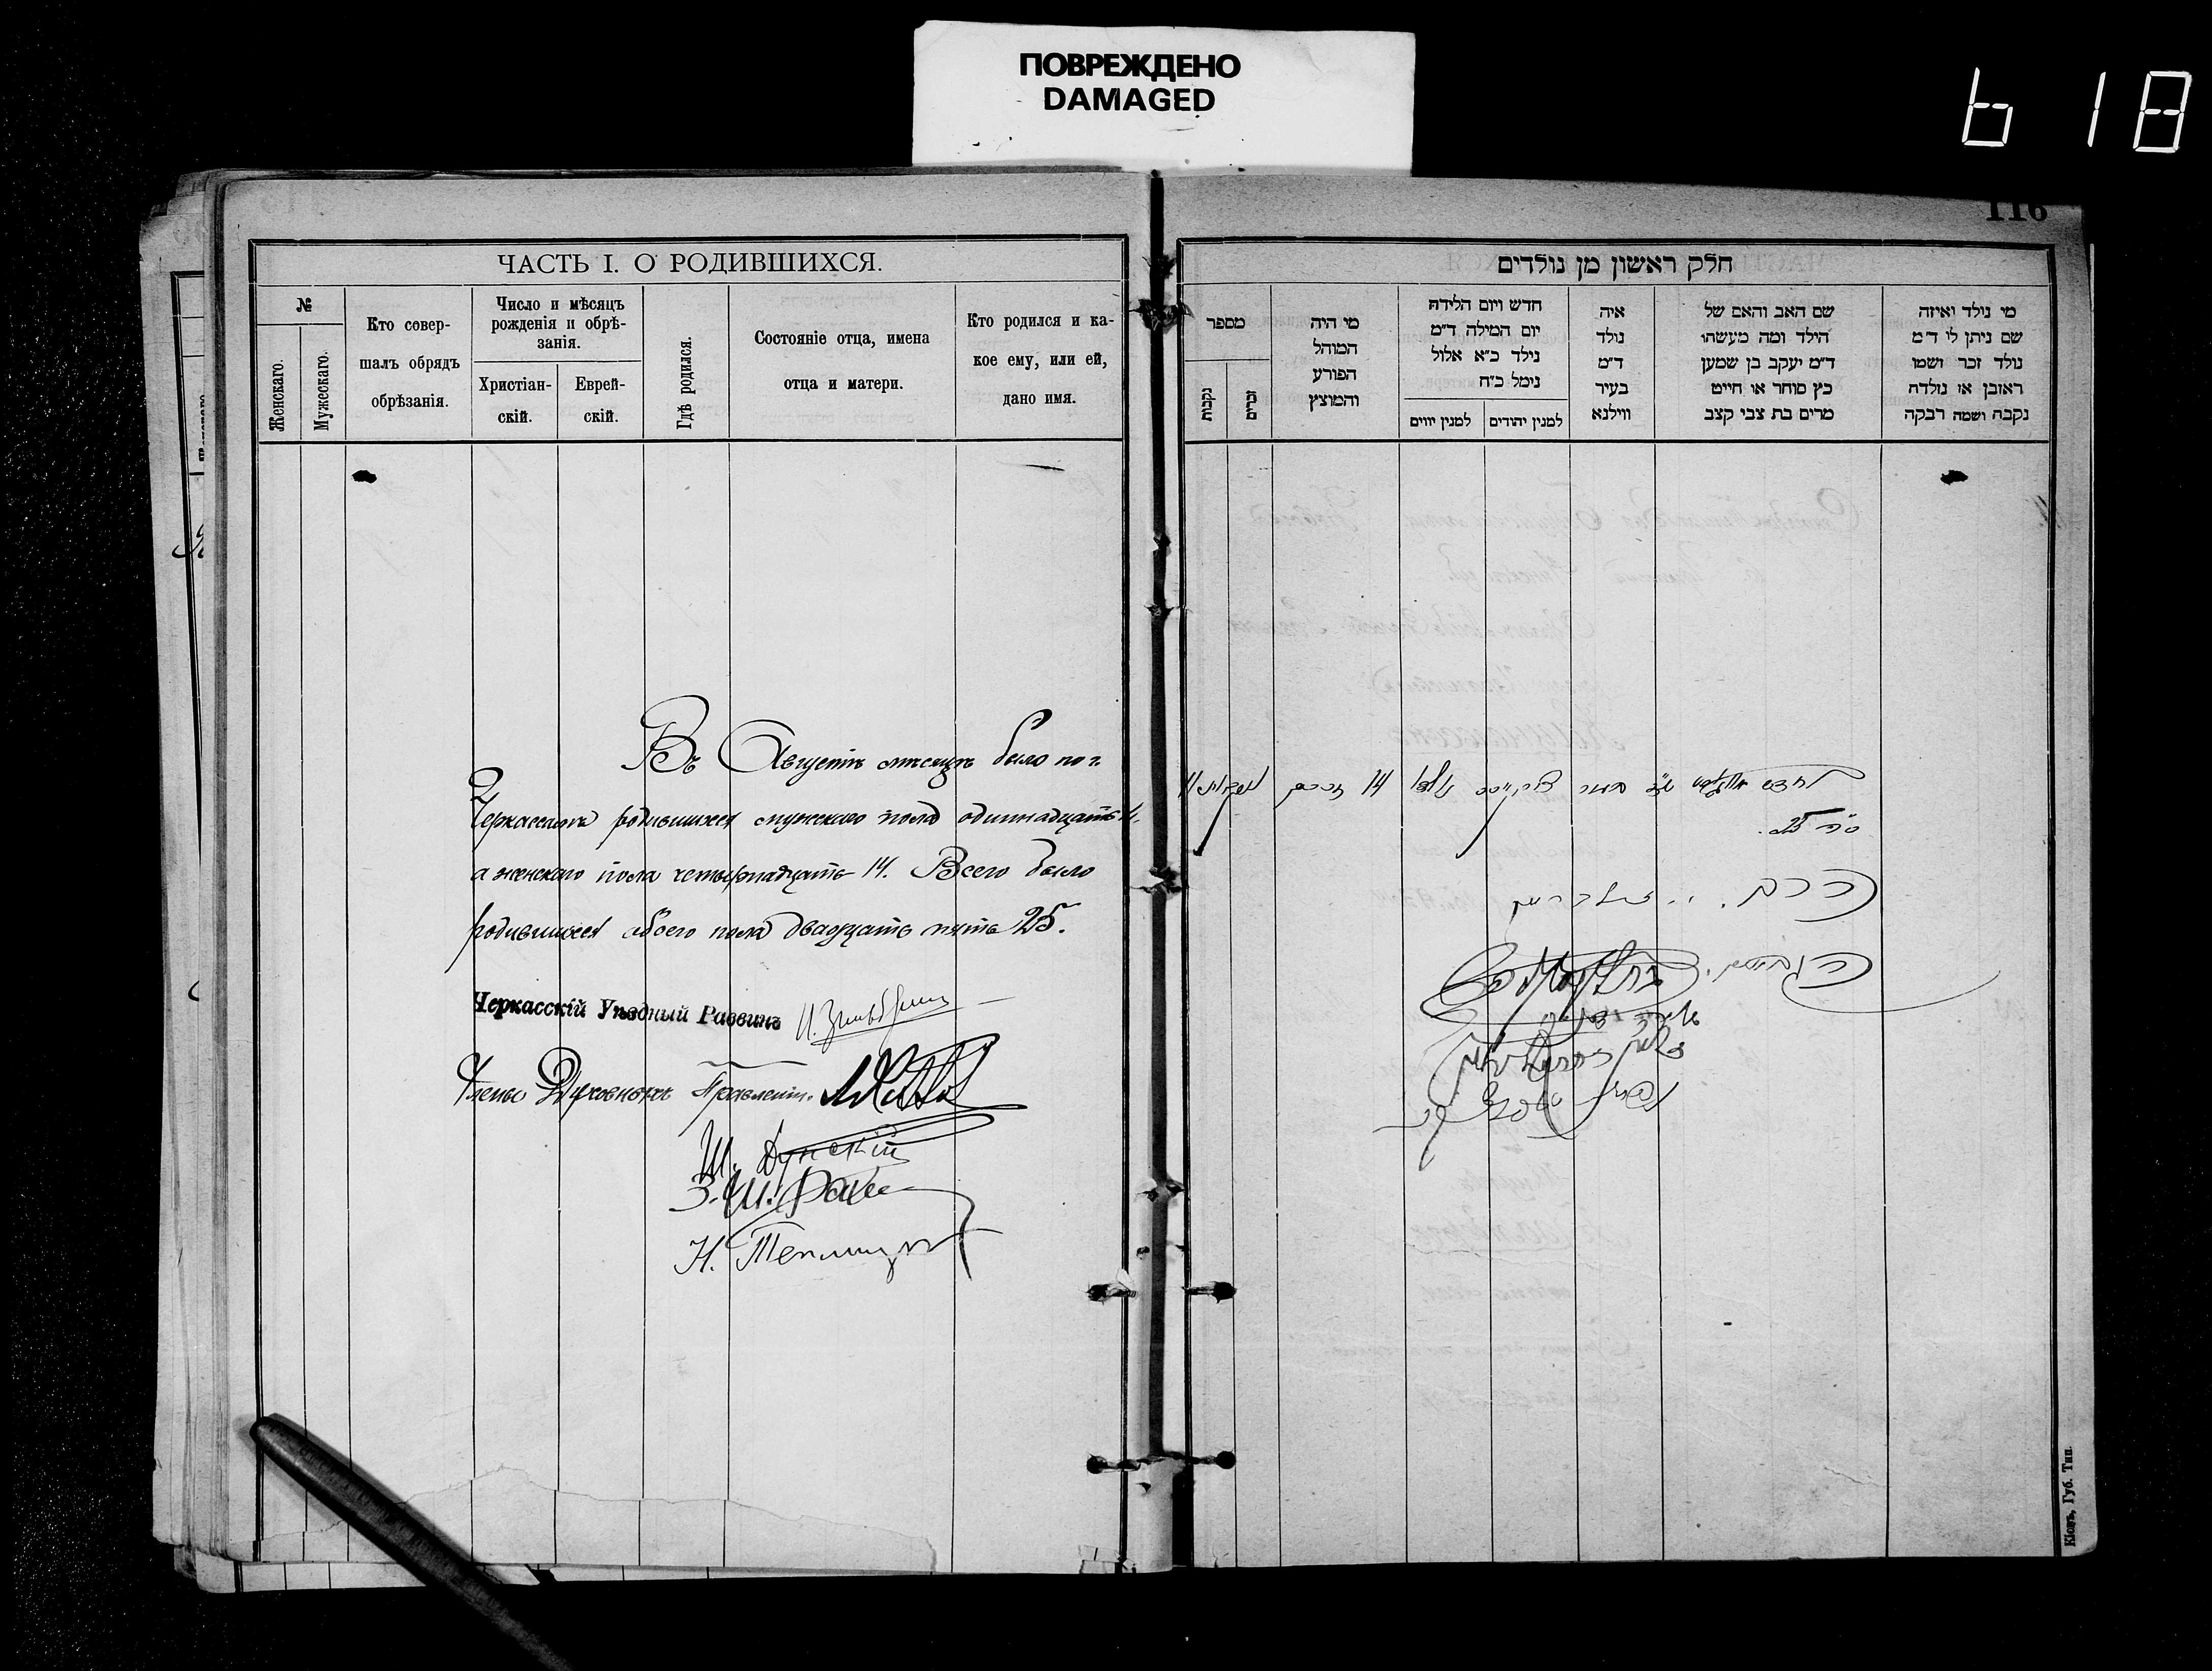 ПОВРЕЖДЕНО
DAMAGED
618
116
ЧАСТЬ I. О РОДИВШИХСЯ.
№
Женскаго.
Мужескаго.
Кто совер-
шалъ обрядъ
обрѣзанія.
Число и мѣсяцъ
рожденія и обрѣ-
занія.
Христіан-
скій.
Еврей-
скій.
Гдѣ родился.
Состояніе отца, имена
отца и матери.
Кто родился и ка-
кое ему, или ей,
дано имя.
Въ Августѣ мѣсяцѣ было по г.
Черкассамъ родившихся мужскаго пола одиннадцать 11.
а женскаго пола четырнадцать 14. Всего было
родившихся обоего пола двадцать пять 25.
Черкасскій Уѣздный Раввинъ
Члены Духовнаго Правленія.
Ш. Дунскій
З. Ш.
Н. Теплицкій
חלק ראשון מן נולדים
מי נולד ואיזה
שם ניתן לו ד״מ
נולד זכר ושמו
ראובן או נולדה
נקבה ושמה רבקה
שם האב והאם של
הילד ומה מעשהו
ד״מ יעקב בן שמעון
כץ סוחר או חייט
מרים בת צבי קצב
איה
נולד
ד״מ
בעיר
ווילנא
חדש ויום הלידה
יום המילה ד״מ
נילד כ״א אלול
נימל כ״ח
למנין יהודים
למנין יווים
מי היה
המוהל
הפורע
והמוצץ
מספר
זכרים
נקבות
14 זכרים 11
25
הרב
Кіевъ, Губ. Тип.